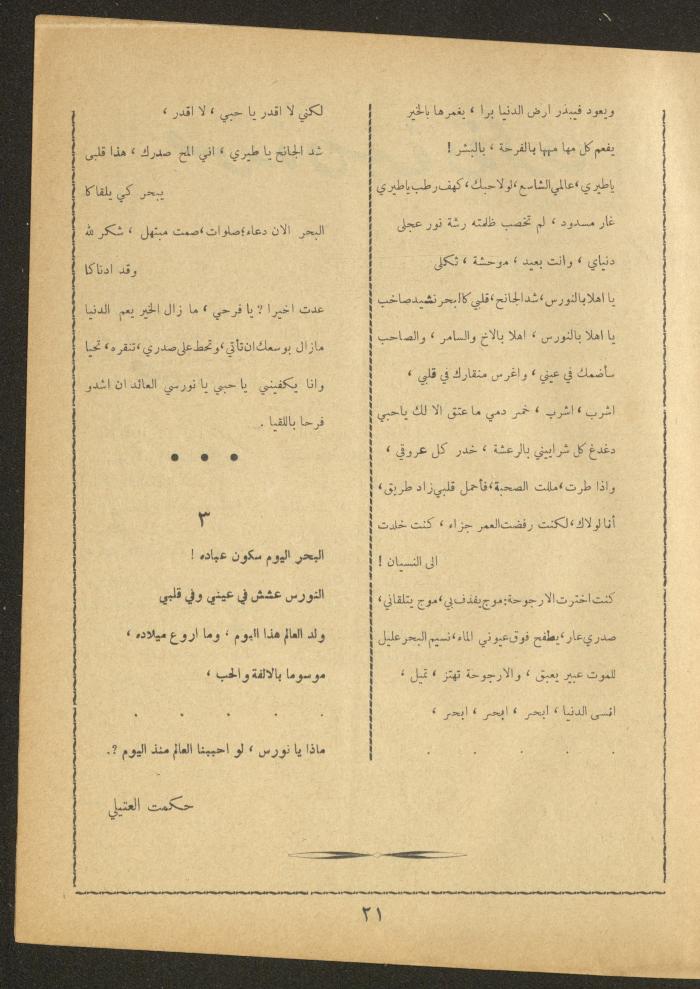 ويعود فيبذر ارض الدنيا برا ، يغمرها بالخير
يفعم كل مها مهها بالفرحة ، بالبشر !
ياطيري ، عالمي الشاسع ، لولا حبك ، كهف رطب ياطيري
غار مسدود ، لم تخصب ظلمته رشة نور عجلى
دنياي ، وانت بعيد ، موحشة ، ثكلى
يا اهلا بالنورس ، شد الجانح ، قلبي كالبحر نشيد صاخب
يا اهلا بالنورس ، اهلا بالاخ والسامر ، والصاحب
سأضمك في عيني ، واغرس منقارك في قلبي ،
اشرب ، اشرب ، خمر دمي ما عتق الا لك ياحبي
دغدغ كل شراييني بالرعشة ، خدر كل عروقي ،
واذا طرت ، مللت الصحبة ، فأحمل قلبي زاد طريق ،
أنا لولاك ، لكنت رفضت العمر جزاء ، كنت خلدت
الى النسيان !
كنت اخترت الارجوحة : موج يقذف بي ، موج يتلقاني ،
صدري عار ، يطفح فوق عيوني الماء ، نسيم البحر عليل
للموت عبير يعبق ، والارجوحة تهتز ، تميل ،
انسى الدنيا ، ابحر ، ابحر ، ابحر ،
. . . . .
لكني لا اقدر يا حبي ، لا اقدر ،
شد الجانح يا طيري ، اني المح صدرك ، هذا قلبى
يبحر كي يلقاكا
البحر الان دعاء ؛ صلوات ، صمت مبتهل ، شكر لله
وقد ادناكا
عدت اخيرا ? يا فرحي ، ما زال الخير يعم الدنيا
مازال بوسعك ان تأتي ، وتحط على صدري ، تنقره ، تحيا
وانا يكفيني يا حبي يا نورسي العائد ان اشدو
فرحا باللقيا .
● ● ●
٣
البحر اليوم سكون عباده !
النورس عشش في عيني وفي قلبي
ولد العالم هذا اليوم ، وما اروع ميلاده ،
موسوما بالالفة والحب ،
. . . . .
ماذا يا نورس ، لو احببنا العالم منذ اليوم ?.
حكمت العتيلي
٢١